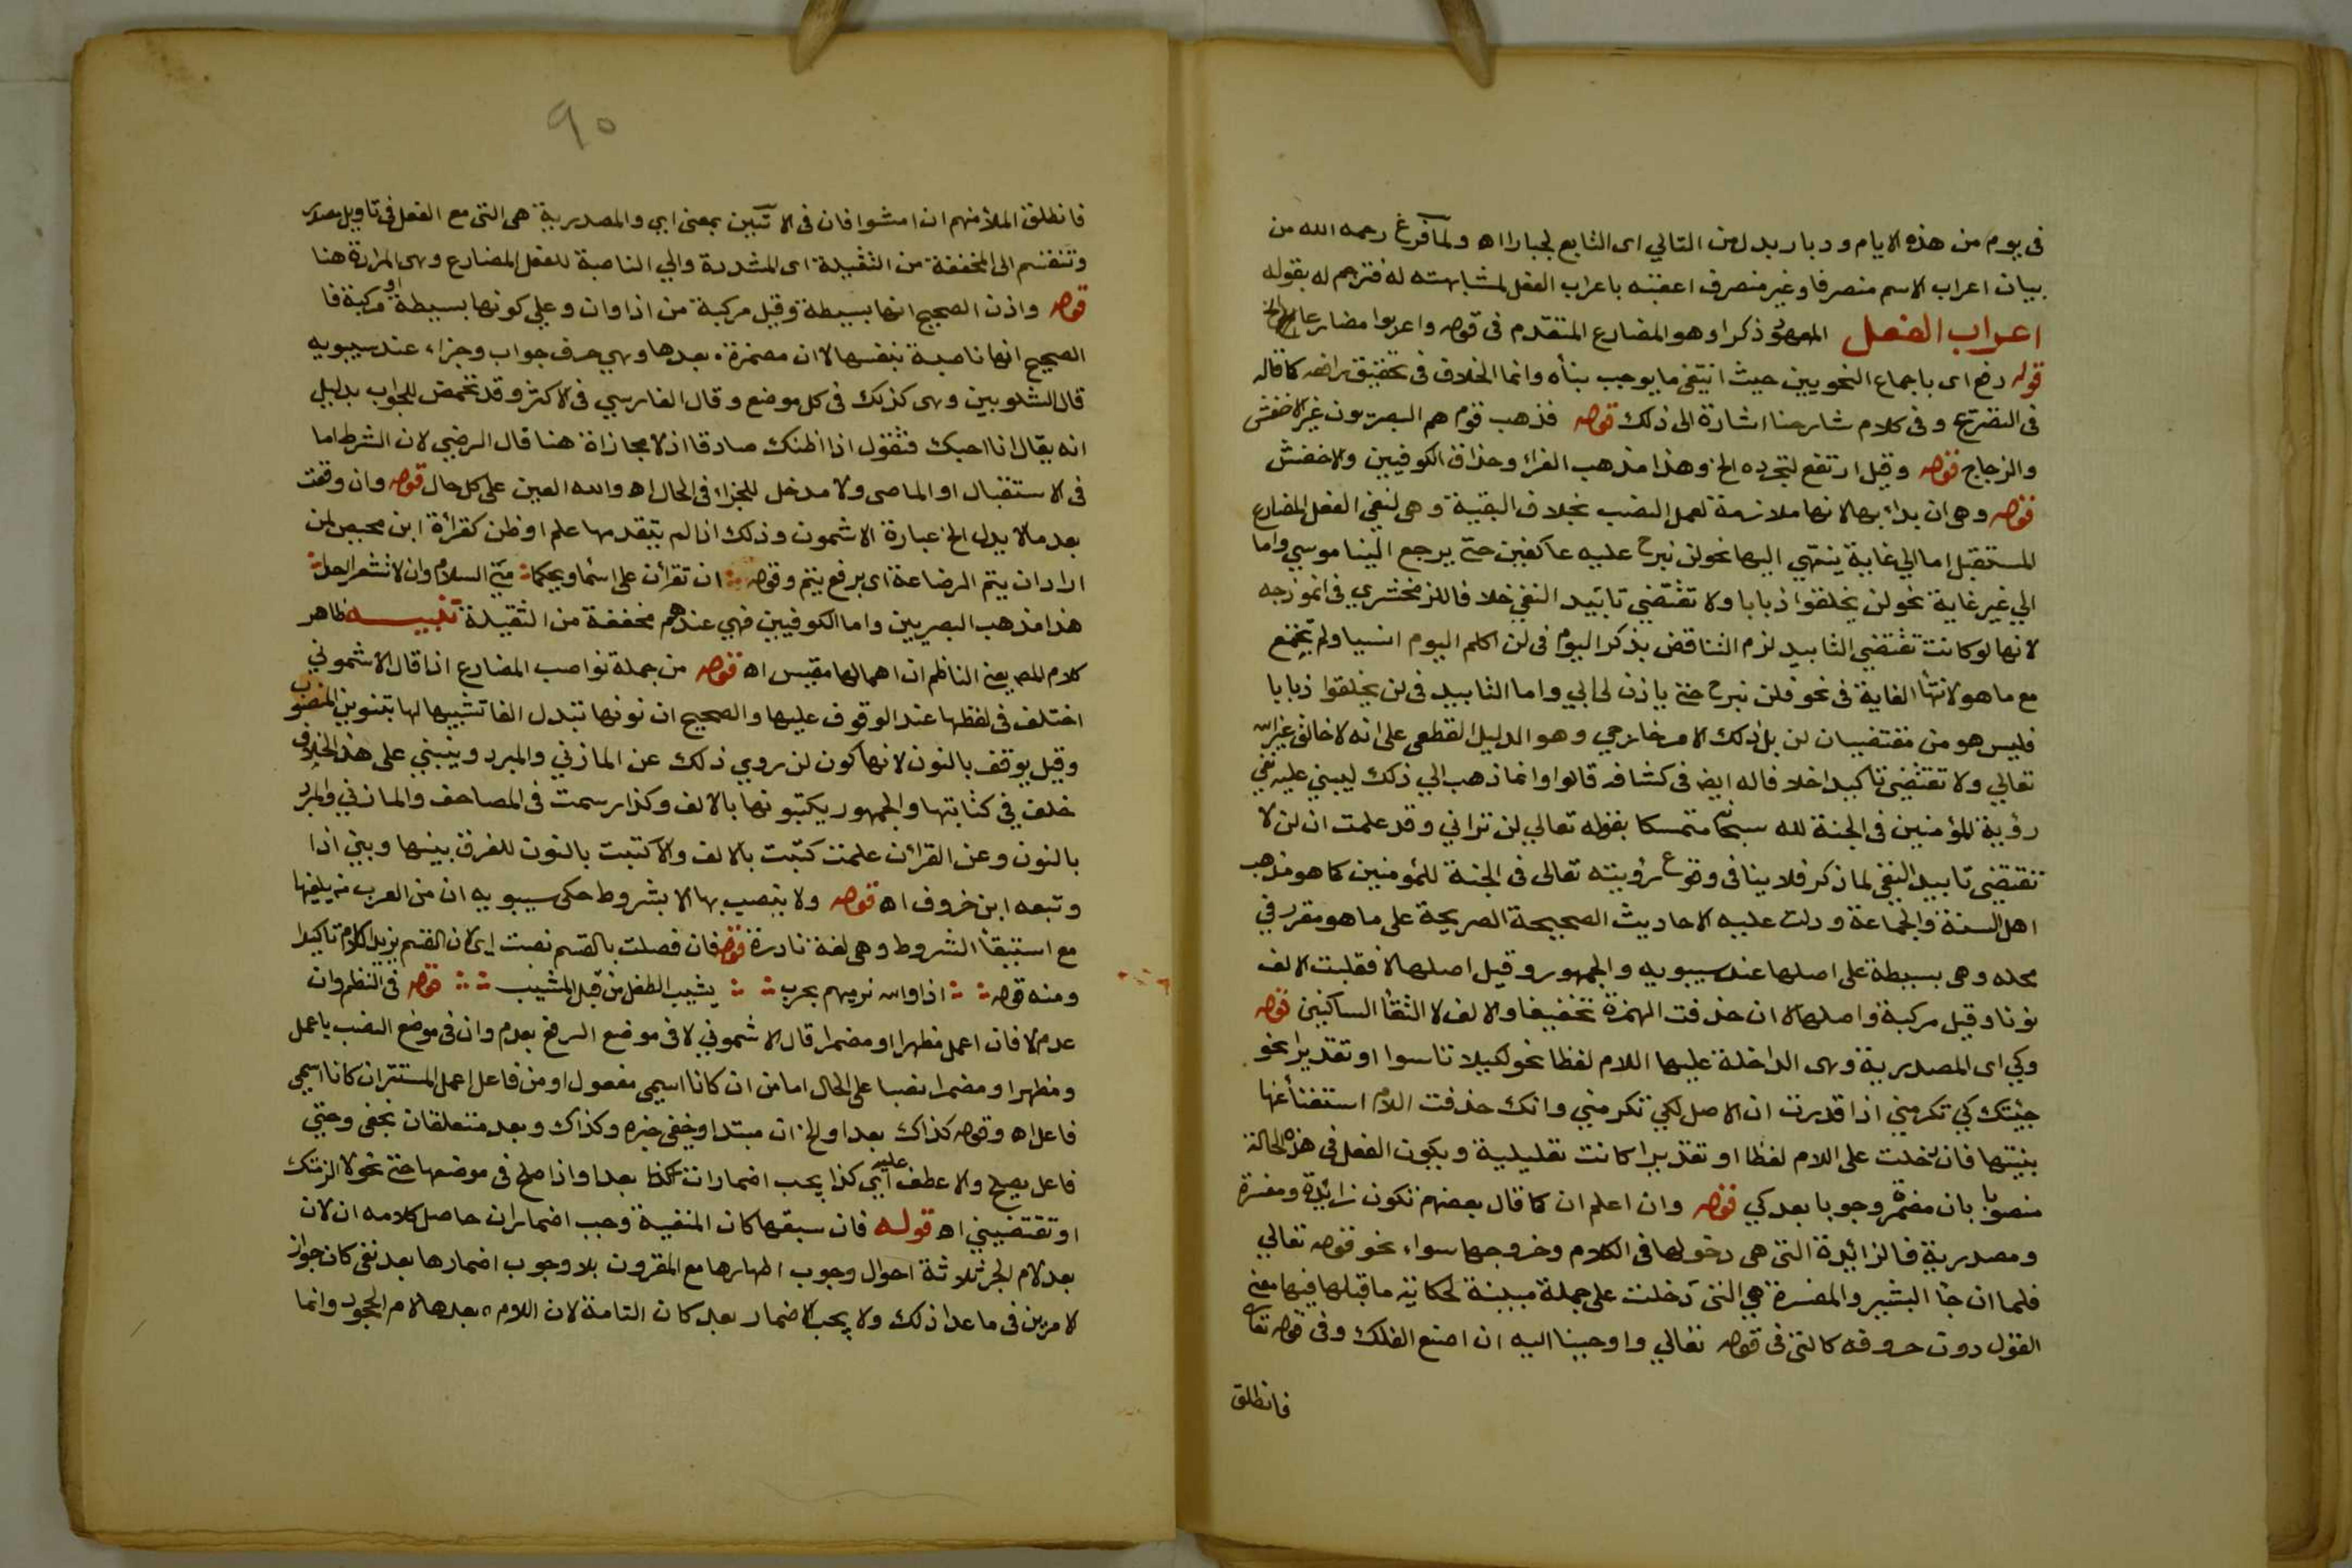 فى يوم من هذه الايام ودبار بدل من التالي اى التابع لجبارا اه ولما فرغ رحمه الله من
بيان اعراب الاسم منصرفا وغير منصرف اعقبه باعراب الفعل لمشابهته له فترجم له بقوله
اعراب الفعل المعهود ذكرا وهو المضارع المتقدم فى قوله واعربوا مضارعا الخ
قوله رفع اى باجماع النحويين حيث انتفى ما يوجب بناه وانما الخلاف فى تحقيق رافعه كما قاله
فى التصريح وفى كلام شارحنا اشارة الى ذلك قوله فذهب قوم هم البصريون غير الاخفش
والزجاج قوله وقيل ارتفع لتجرده الخ وهذا مذهب الفراء وحذاق الكوفيين والاخفش
قوله وهى ان بدا بها لانها ملازمة لعمل النصب بخلاف البقية وهى لنفى الفعل المضارع
المستقبل اما الي غاية ينتهي اليها نحو لن نبرح عليه عاكفين حتى يرجع الينا موسي واما
الي غير غاية نحو لن يخلقوا ذبابا ولا تقتضي تابيد النفي خلافا للزمخشري فى انموذجه
لانها لو كانت تقتضي التابيد لزم التناقض بذكر اليوم فى لن اكلم اليوم انسيا ولم يجتمع
مع ما هو لانتها الغاية فى نحو فلن نبرح حتى ياذن لى ابي واما التابيد فى لن يخلقوا ذبابا
فليس هو من مقتضيات لن بل ذلك لامر خارجي وهو الدليل القطعى على انه لا خالق غير الله
تعالي ولا تقتضي تاكيدا خلافا له ايضا فى كشافه قالوا وانما ذهب الي ذلك ليبني عليه نفي
رؤية المؤمنين فى الجنة لله سبحانه متمسكا بقوله تعالي لن تراني وقد علمت ان لن لا
تقتضي تابيد النفي لما ذكر فلا ينافى وقوع رؤيته تعالى فى الجنة للمؤمنين كما هو مذهب
اهل السنة والجماعة ودلت عليه الاحاديث الصحيحة الصريحة على ما هو مقرر في
محله وهى بسيطة على اصلها عند سيبويه والجمهور وقيل اصلها لا فقلبت الالف
نونا وقيل مركبة واصلها لا ان حذفت الهمزة تخفيفا والالف لالتقا الساكنين قوله
وكي اى المصدرية وهى الداخلة عليها اللام لفظا نحو لكيلا تاسوا او تقديرا نحو
جئتك كي تكرمني اذا قدرت ان الاصل لكي تكرمني وانك حذفت اللام استغناء عنها
بنيتها فان دخلت على اللام لفظا او تقديرا كانت تعليلية ويكون الفعل فى هذه الحالة
منصوبا بان مضمرة وجوبا بعد كي قوله وان اعلم ان كما قال بعضهم تكون زائدة ومفسرة
ومصدرية فالزائدة التى هى دخولها فى الكلام وخروجها سواء نحو قوله تعالي
فلما ان جا البشير والمفسرة هي التى دخلت على جملة مبينة لحكاية ما قبلها فيها معنى
القول دون حروفه كالتى فى قوله تعالي واوحينا اليه ان اصنع الفلك وفى قوله تعالى
فانطلق
٩٠
فانطلق الملأ منهم ان امشوا فان فى الايتين بمعنى اى والمصدرية هى التى مع الفعل فى تاويل مصدر
وتنقسم الى المخففة من الثقيلة اى المشددة والي الناصبة للفعل المضارع وهى المرادة هنا
قوله واذن الصحيح انها بسيطة وقيل مركبة من اذا وان وعلى كونها بسيطة او مركبة فا
الصحيح انها ناصبة بنفسها لا ان مضمرة بعدها وهى حرف جواب وجزاء عند سيبويه
قال الشلوبين وهى كذلك فى كل موضع وقال الفارسي فى الاكثر وقد تتمحض للجواب بدليل
انه يقال انا احبك فتقول اذا اظنك صادقا اذ لا مجازاة هنا قال الرضي لان الشرط اما
فى الاستقبال او الماضى ولا مدخل للجزاء فى الحال اه والله المعين على كل حال قوله وان وقعت
بعد ما لا يدل الخ عبارة الاشمونى وذلك اذا لم يتقدمها علم او ظن كقراءة ابن محيصن لمن
اراد ان يتم الرضاعة اى برفع يتم وقوله ان تقرأن على اسماء ويحكما منى السلام وان لا تشعرا احدا
هذا مذهب البصريين واما الكوفيين فهي عندهم مخففة من الثقيلة تنبيه ظاهر
كلام المص يعني الناظم ان اهمالها مقيس اه قوله من جملة نواصب المضارع اذا قال الاشموني
اختلف فى لفظها عند الوقوف عليها والصحيح ان نونها تبدل الفا تشبيها لها بتنوين المنصوب
وقيل يوقف بالنون لانها كون لن روي ذلك عن المازني والمبرد وينبني على هذا الخلاف
خلف في كتابتها والجمهور يكتبونها بالالف وكذا رسمت فى المصاحف والمازني والمبرد
بالنون وعن الفراء ان علمت كتبت بالالف والا كتبت بالنون للفرق بينها وبين اذا
وتبعه ابن خروف اه قوله ولا ينصب بها الا بشروط حكى سيبويه ان من العرب من يلغيها
مع استيفا الشروط وهى لغة نادرة قوله فان فصلت بالقسم نصبت اى لان القسم يزيد الكلام تاكيدا
ومنه قوله اذا والله نرميهم بحرب يشيب الطفل من قبل المشيب قوله فى النظم وان
عدم لا فان اعمل مظهرا او مضمرا قال الاشموني لا فى موضع الرفع بعدم وان فى موضع النصب باعمل
ومظهرا ومضمرا نصبا على الحال اما من ان كانا اسمي مفعول او من فاعل اعمل المستتر ان كانا اسمي
فاعل اه وقوله كذاك بعد او الخ ان مبتدا وخفى خبره وكذاك وبعد متعلقان بخفى وحتى
فاعل يصلح والا عطف عليه اي كذا يجب اضمار ان بعد او اذا صلح فى موضعها حتى نحو لالزمنك
او تقتضيني اه قوله فان سبقها كان المنفية وجب اضمار ان حاصل كلامه ان لان
بعد لام الجر ثلاثة احوال وجوب اظهارها مع المقرون بلا وجوب اضمارها بعد نفى كان جواز
لامرين فى ما عدا ذلك ولا يجب الاضمار بعد كان التامة لان اللام بعدها لام الجحود وانما